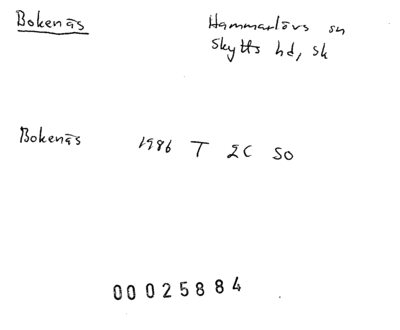 Bokenäs
Hammarlövs sn
Skytts hd, sk
Bokenäs 1986 T 2C SO
00025884